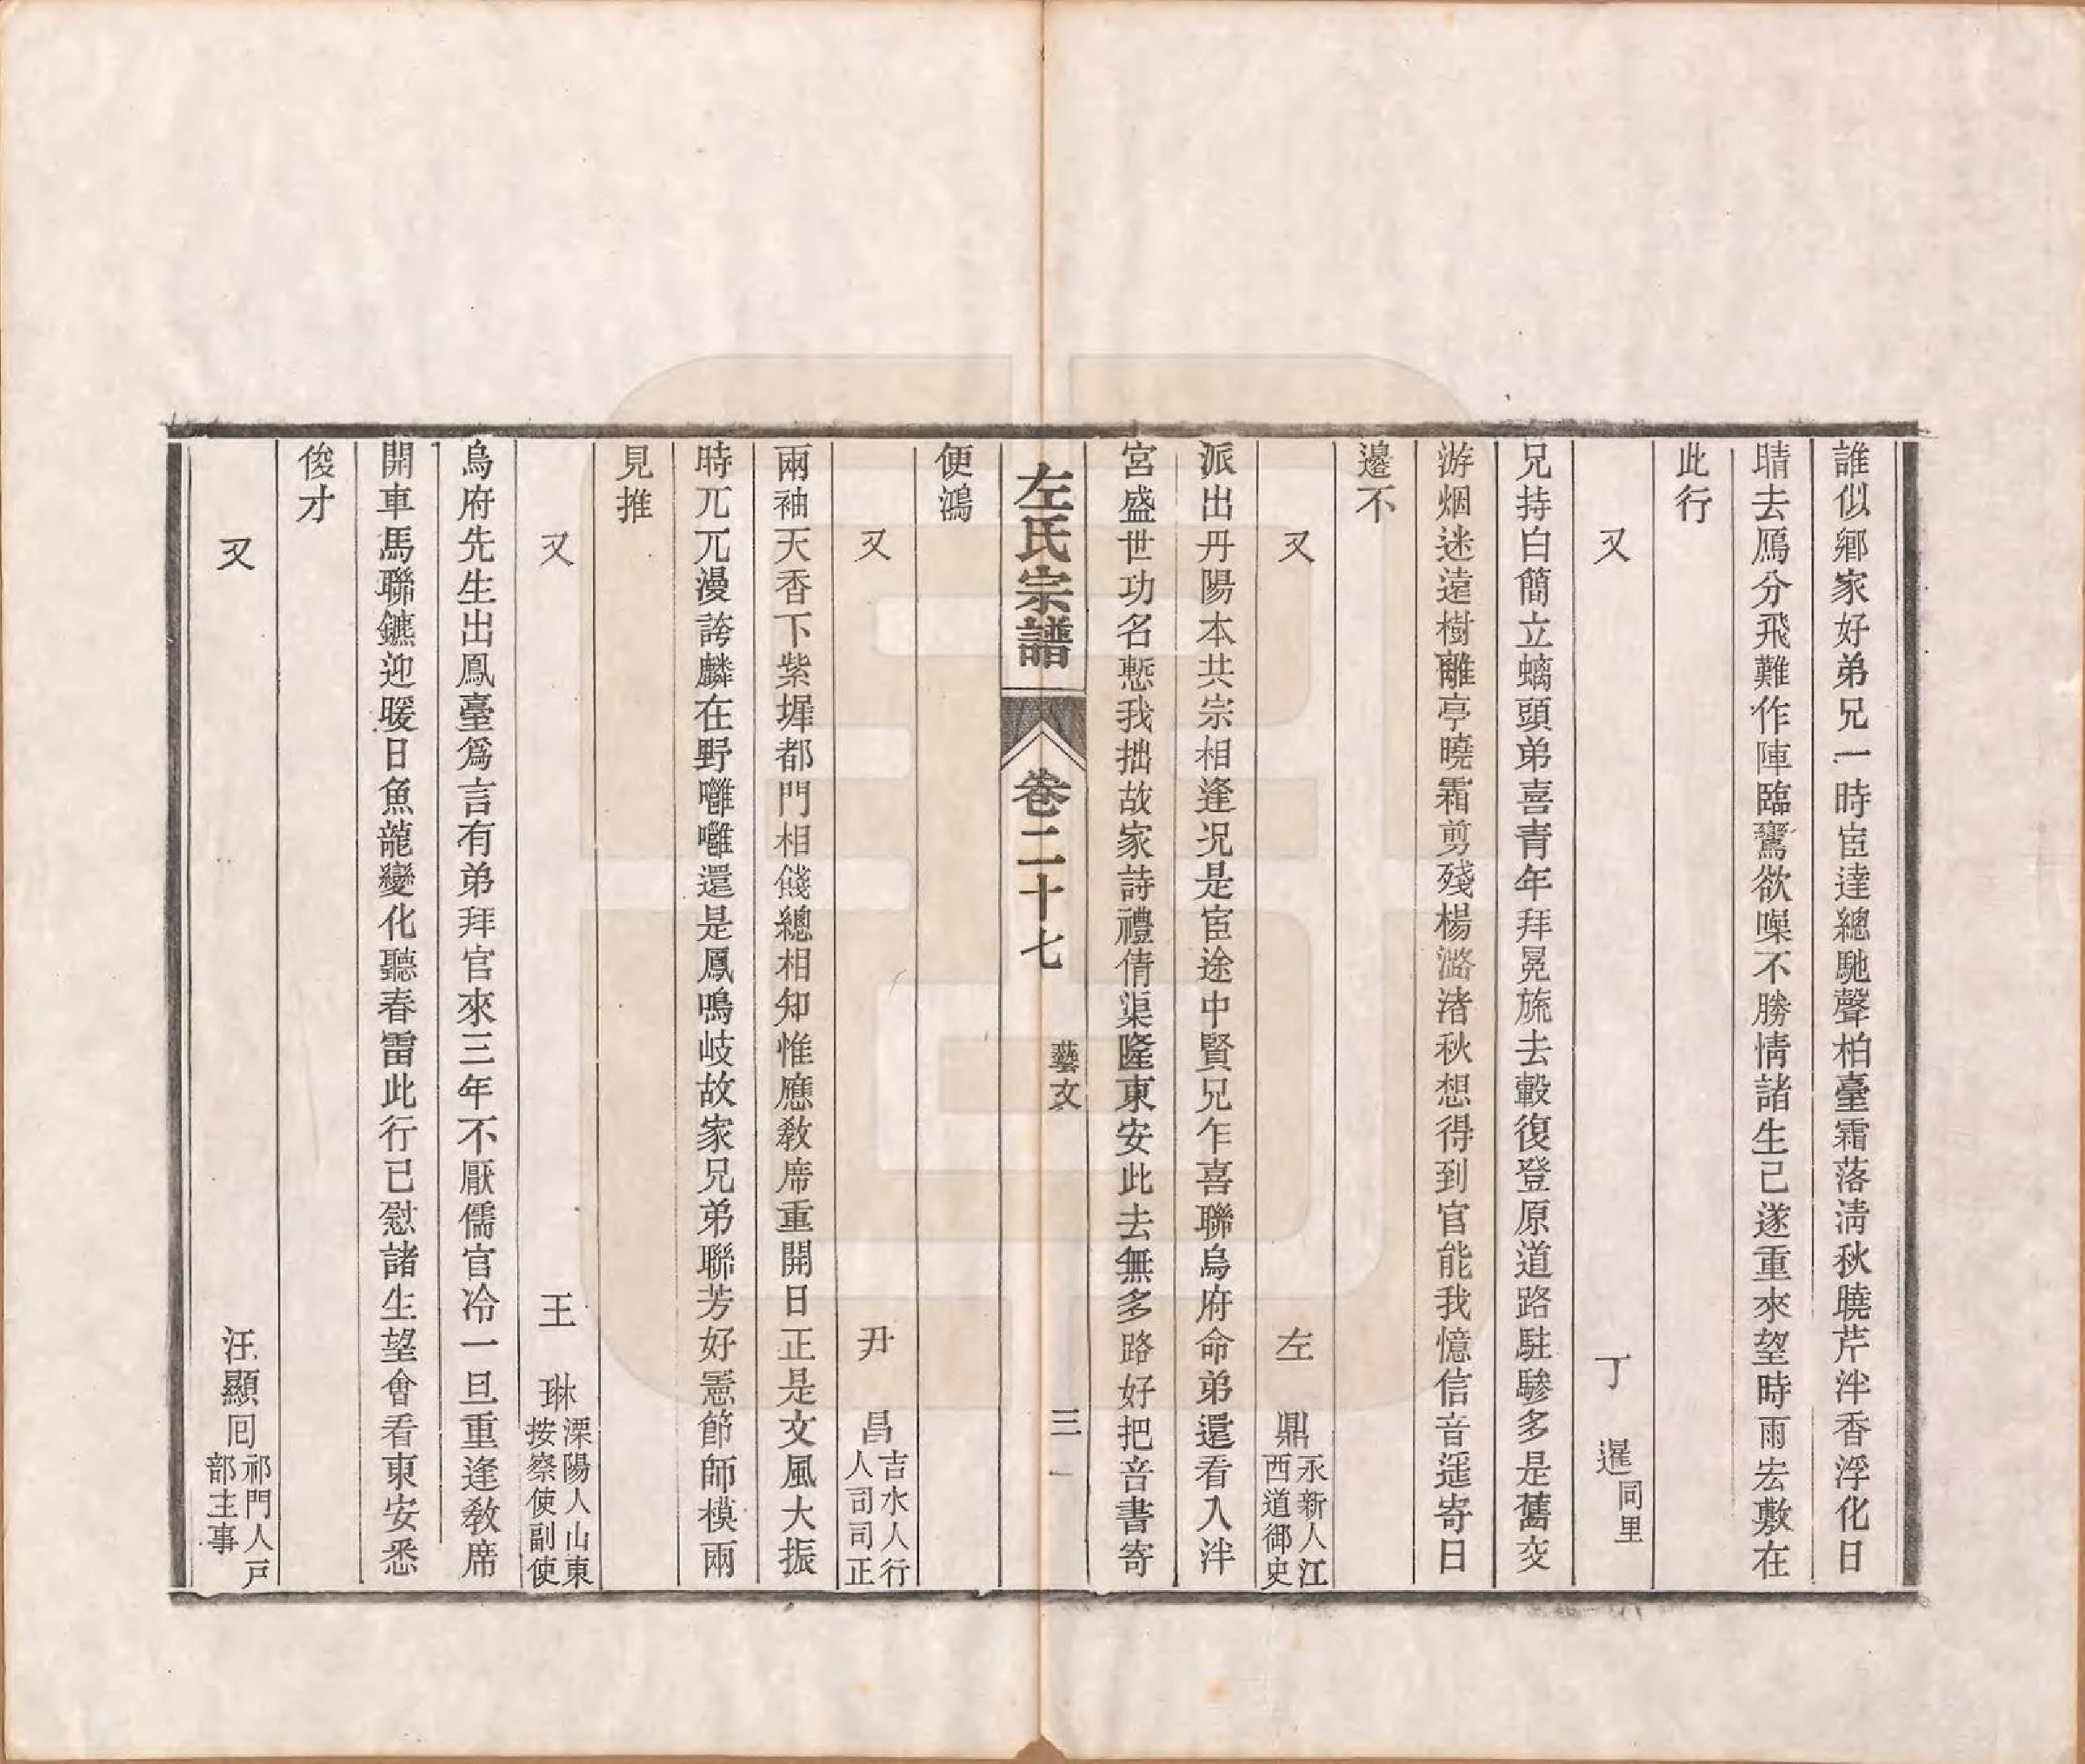 誰似鄉家好弟兄一時宦達總馳聲柏臺霜落淸秋曉芹泮香浮化日
晴去鴈分飛難作陣臨鶯欲噪不勝情諸生己遂重來望時雨宏敷在
此行
又　丁　暹同里
兄持白簡立螭頭弟喜青年拜冕旒去轂復登原道路駐驂多是舊交
游烟迷遠樹離亭曉霜剪殘楊潞渚秋想得到官能我憶信音遥寄日
邊不
又　左　鼎永新人江西道御史
派出丹陽本共宗相逢況是宦途中賢兄乍喜聯烏府命弟還看入泮
宮盛世功名慙我拙故家詩禮倩渠隆東安此去無多路好把音書寄
左氏宗譜　卷二十七　藝文　三
便鴻
又　尹　昌吉水人行人司司正
兩袖天香下紫墀都門相餞總相知惟應敎席重開日正是文風大振
時兀兀漫誇麟在野噰噰還是鳳鳴岐故家兄弟聯芳好憲節師模兩
見推
又　王　琳溧陽人山東按察使副使
烏府先生出鳳臺爲言有弟拜官來三年不厭儒官冷一旦重逢敎席
開車馬聯鑣迎暖日魚龍變化聽春雷此行已慰諸生望會看東安悉
俊才
又　汪顯囘祁門人戸部主事